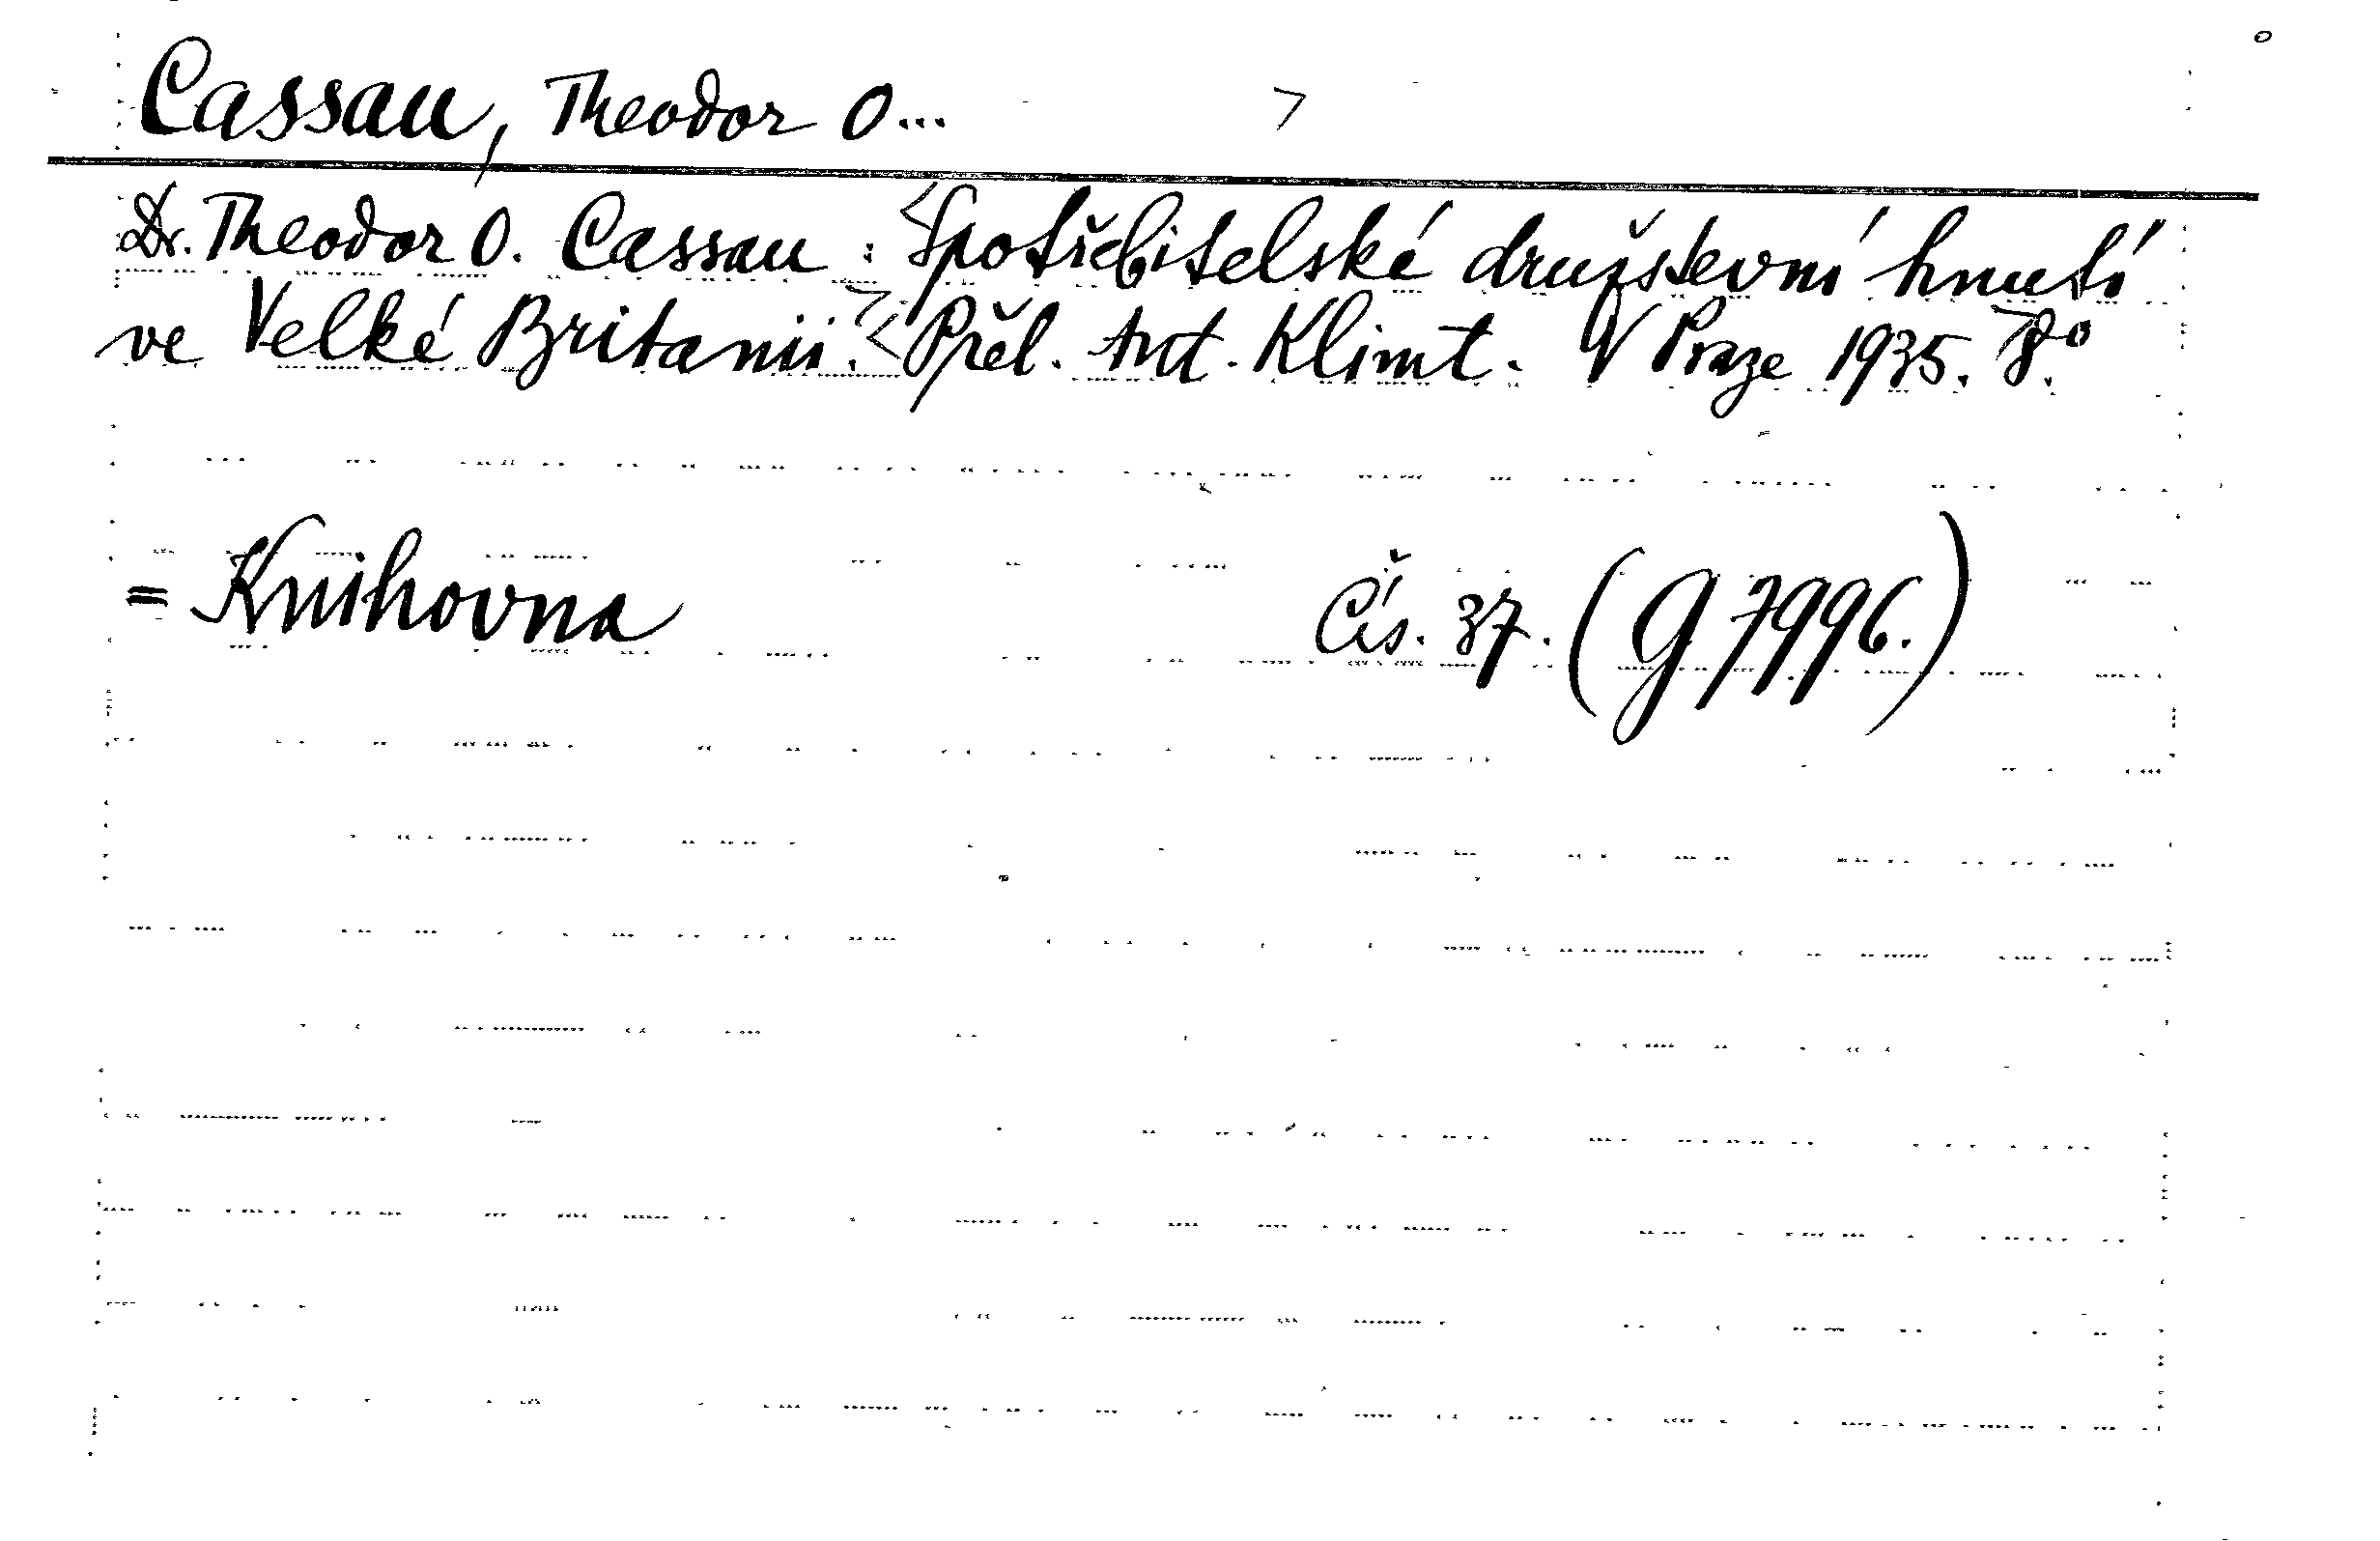 Cassau, Theodor O...
Dr. Theodor O. Cassau: Spotřebitelské družstevní hnutí
ve Velké Britanii. Přel. Ant. Klimt. V Praze 1935. 8.°
= Knihovna Čís. 37. (G 7996.)